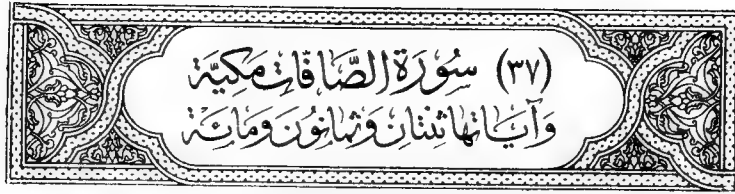 (٣٧) سُورَة الصَّافَّات مَكيَّة
وَآيَاتهَا ثِنتَان وَثمَانُون وَمائة